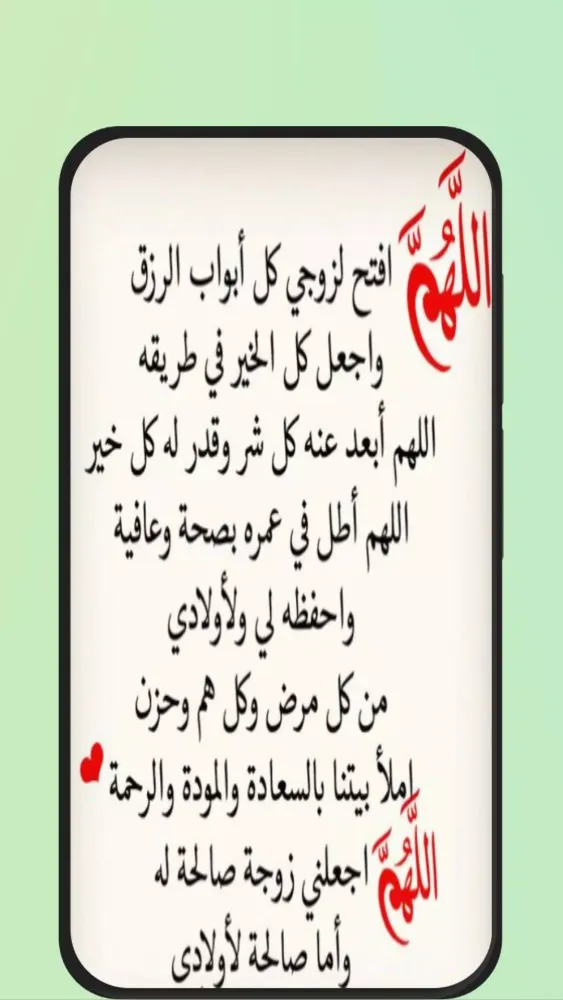 اللَّهُمَّ افتح لزوجي كل أبواب الرزق
واجعل كل الخير في طريقه
اللهم أبعد عنه كل شر وقدر له كل خير
اللهم أطل في عمره بصحة وعافية
واحفظه لي ولأولادي
من كل مرض وكل هم وحزن
املأ بيتنا بالسعادة والمودة والرحمة
اللَّهُمَّ اجعلني زوجة صالحة له
وأما صالحة لأولادي